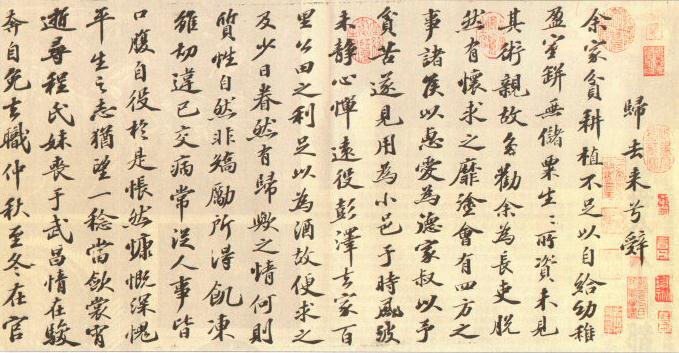 歸去来兮辭
余家貧耕植不足以自給幼稚
盈室缾無儲粟生〻所資未見
其術親故多勸余為長吏脫
然有懷求之靡塗會有四方之
事諸侯以惠愛為德家叔以予
貧苦遂見用為小邑于時風波
未静心憚遠役彭澤去家百
里公田之利足以為酒故便求之
及少日眷然有歸歟之情何則
質性自然非矯勵所得飢凍
雖切違己交病常從人事皆
口腹自役於是悵然慷慨深愧
平生之志猶望一稔當歛裳宵
逝尋程氏妹喪于武昌情在駿
奔自免去職仲秋至冬在官